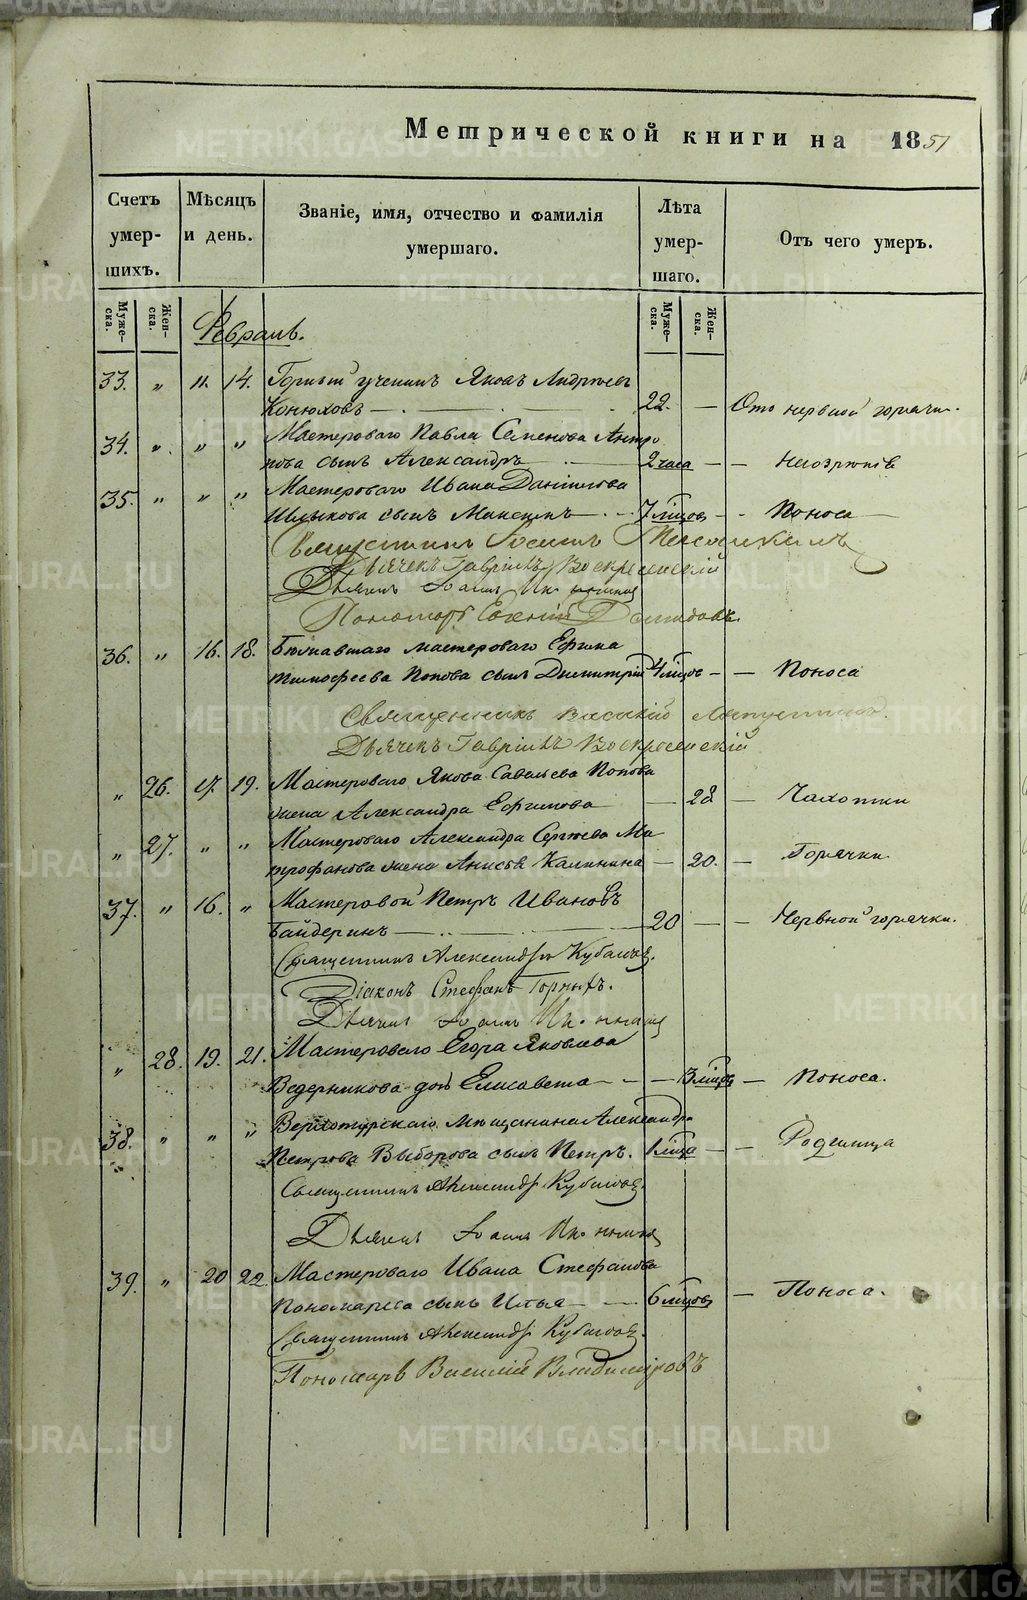 Метрической книги на 1851
Счетъ умер- шихъ.
Мѣсяцъ и день.
Званіе, имя, отчество и фамилія умершаго.
Лѣта умер- шаго.
Отъ чего умеръ.
Муже- ска. Жен- ска. Муже- ска. Жен- ска.
Февраль.
33. " 11. 14. Горный ученикъ Яковъ Андреевъ
Конюховъ — 22. — Отъ нервной горячки.
34. " " " Мастероваго Павла Семенова Антро
пова сынъ Александръ — 2 часа — —
35. " " " Мастероваго Ивана Данилова
сынъ Максимъ — 7 мѣцовъ — Поноса —
Священникъ
Дьячекъ Гавріилъ Воскресенскій
Дьячекъ
Пономарь Евгений Демидовъ.
36. " 16. 18. мастероваго Ефима
Тимофеева Попова сынъ Димитрій 4 мѣцов — — Поноса
Священникъ Василій
Дьячекъ Гавріилъ Воскресенскій
" 26. 17. 19. Мастероваго Якова Савельева Попова
жена Александра Ефимова — 28 — Чахотки
" 27. " " Мастероваго Александра Сергѣева Ми
трофанова жена Анисья Калинина — 20. — Горячки.
37. " 16. " Мастеровой Петръ Ивановъ
Байдеринъ — 20 — — Нервной горячки.
Священникъ Александръ
Діаконъ Стефанъ Горныхъ.
Дьячекъ
" 28. 19. 21. Мастероваго Егора Яковлева
Ведерникова дочь Елисавета — — — 3 мѣцов — Поноса.
38. " " " Верхотурскаго мѣщанина Александра
Петрова Выборова сынъ Петръ. 1 мѣца — — Родимца
Священникъ Александръ
Дьячекъ
39. " 20 22. Мастероваго Ивана Стефанова
Пономарева сынъ Илья — 6 мѣцовъ — Поноса.
Священникъ Александръ
Пономарь Василий Владиміровъ
METRIKI.GASO-URAL.RU